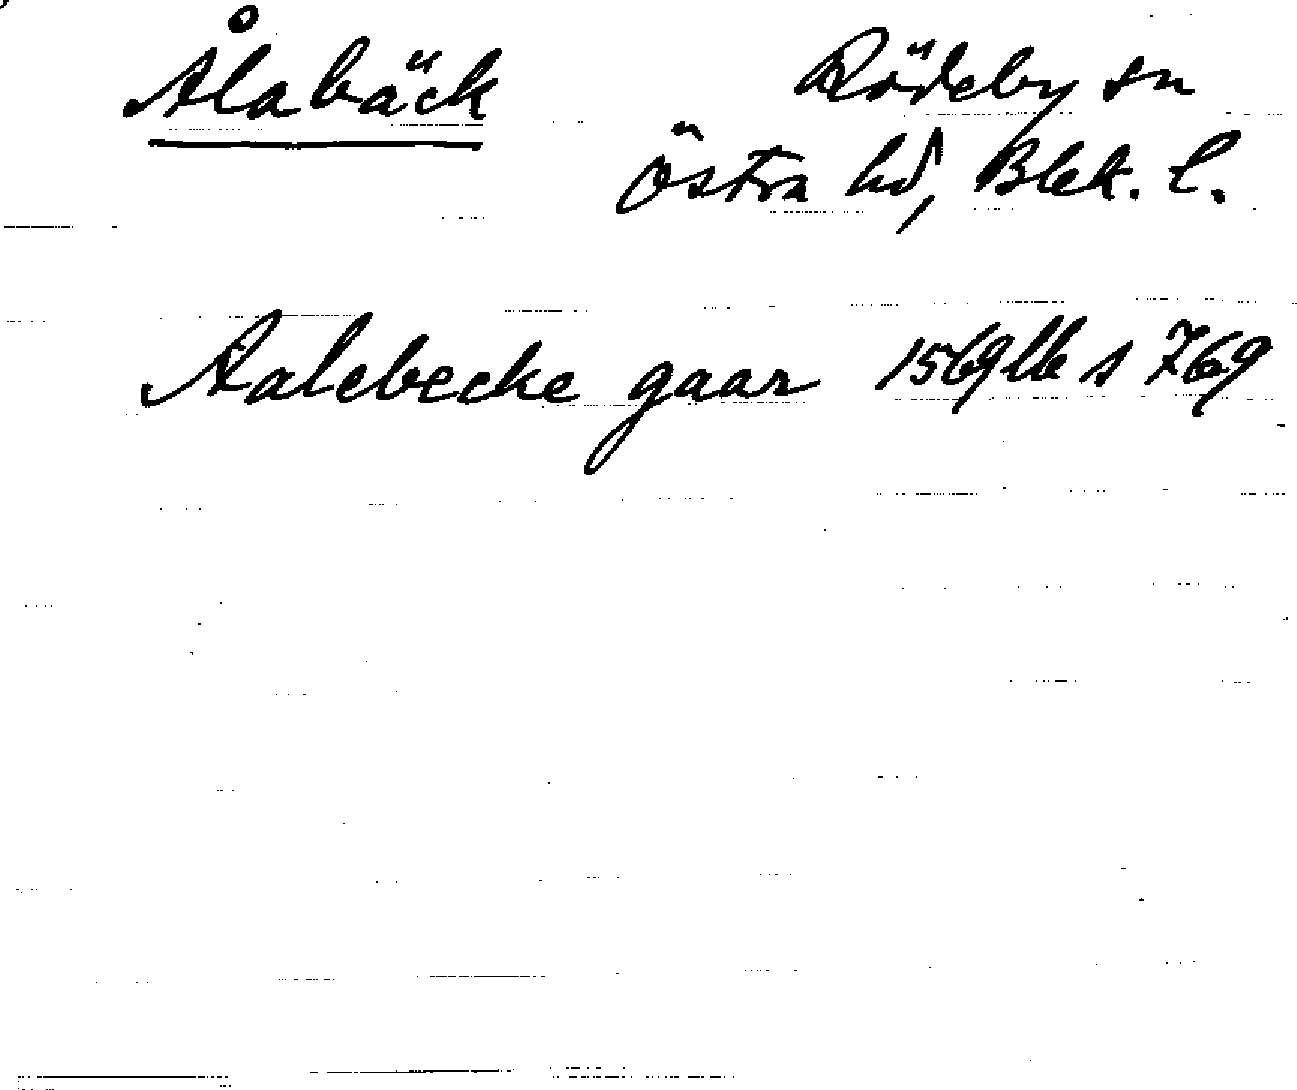 Ålabäck Rödeby sn
Östra hd, Blek. l.
Aalebecke gaar 1569 lb s 769